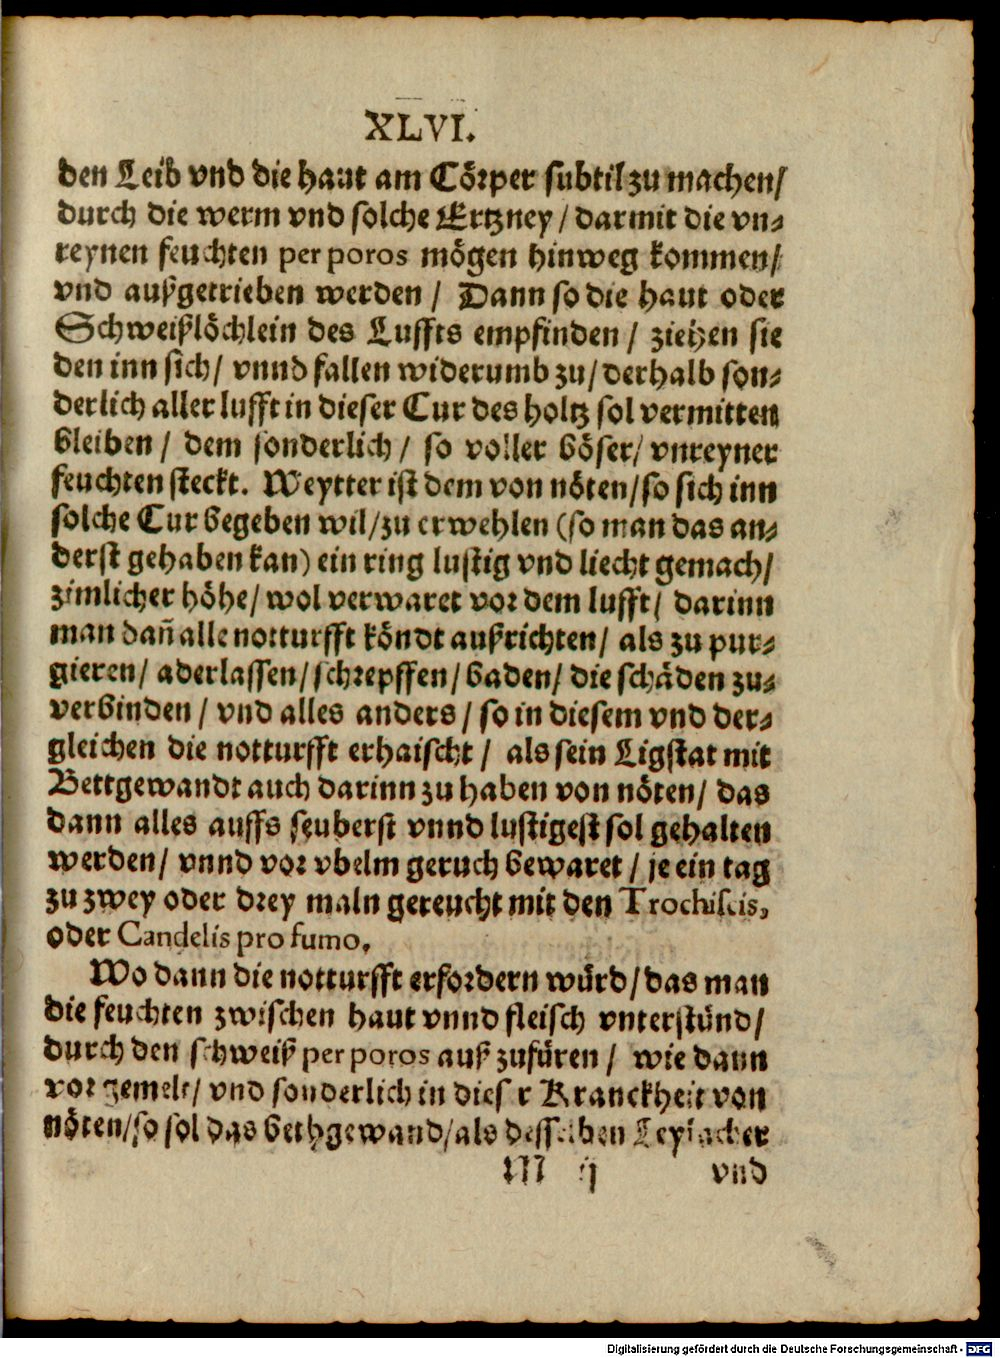 XLVI.
den Leib vnd die haut am Cörper subtil zu machen/
durch die werm vnd solche Ertzney / darmit die vn⸗
reynen feuchten per poros mögen hinweg kommen/
vnd außgetrieben werden / Dann so die haut oder
Schweißlöchlein des Luffts empfinden / ziehen sie
den inn sich / vnnd fallen widerumb zu / derhalb son⸗
derlich aller lufft in dieser Cur des holtz sol vermitten
bleiben / dem sonderlich / so voller böser / vnreyner
feuchten steckt. Weytter ist dem von nöten / so sich inn
solche Cur begeben wil / zu erwehlen (so man das an⸗
derst gehaben kan) ein ring lustig vnd liecht gemach /
zimlicher höhe / wol verwaret vor dem lufft / darinn
man dañ alle notturfft köndt außrichten / als zu pur⸗
gieren / aderlassen / schrepffen / baden / die schäden zu⸗
verbinden / vnd alles anders / so in diesem vnd der⸗
gleichen die notturfft erhaischt / als sein Ligstat mit
Bettgewandt auch darinn zu haben von nöten / das
dann alles auffs seuberst vnnd lustigest sol gehalten
werden / vnnd vor vbelm geruch bewaret / je ein tag
zu zwey oder drey maln gereucht mit den Trochiscis,
oder Candelis pro fumo,
Wo dann die notturfft erfordern würd / das man
die feuchten zwischen haut vnnd fleisch vnterstünd /
durch den schweiß per poros auß zufüren / wie dann
vor gemelt / vnd sonderlich in dieser Kranckheit von
nöten / so sol das bethgewand / als desselben Leylacher
M ij vnd
Digitalisierung gefördert durch die Deutsche Forschungsgemeinschaft - DFG